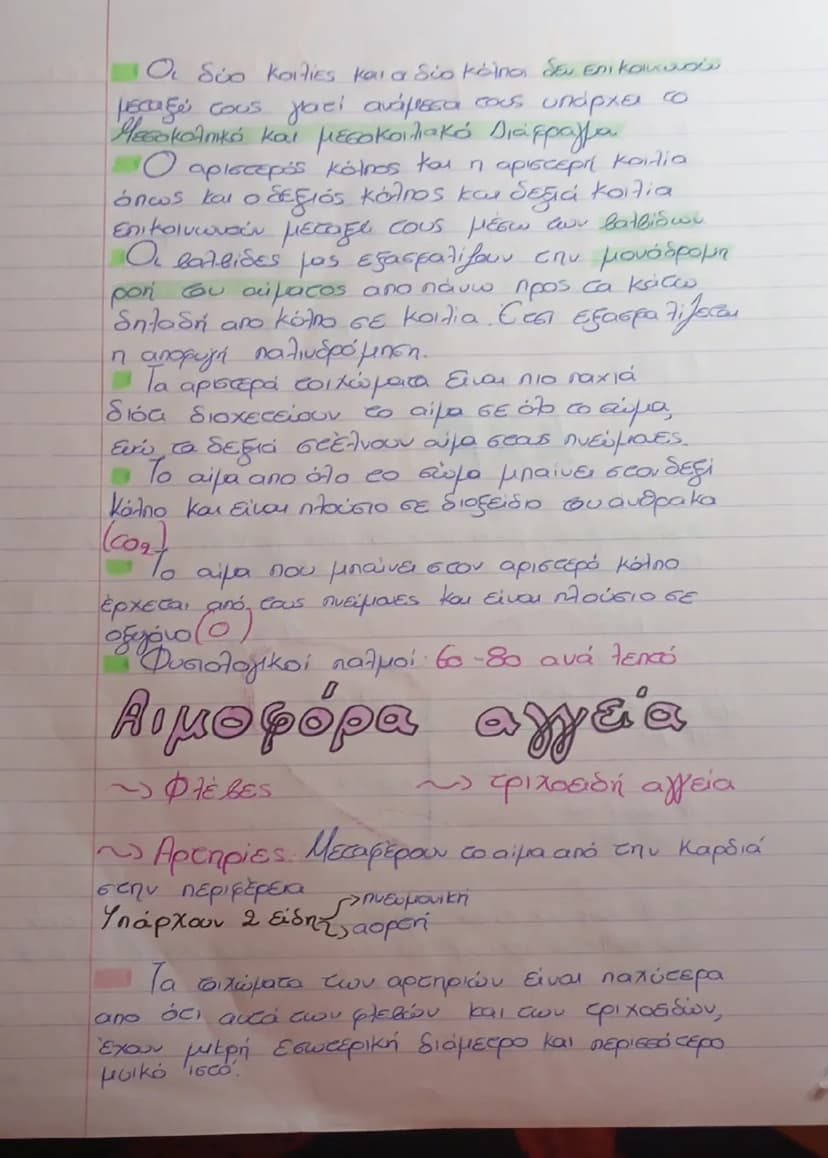 Οι δύο κοιλίες και οι δύο κόλποι δεν επικοινωνούν
μεταξύ τους γιατί ανάμεσα τους υπάρχει το
Μεσοκολπικό και μεσοκοιλιακό Διάφραγμα
Ο αριστερός κόλπος και η αριστερή κοιλία
όπως και ο δεξιός κόλπος και δεξιά κοιλία
επικοινωνούν μεταξύ τους μέσω των βαλβίδων
Οι βαλβίδες μας εξασφαλίζουν την μονόδρομη
ροή του αίματος απο πάνω προς τα κάτω
δηλαδή απο κόλπο σε κοιλία. Έτσι εξασφαλίζεται
η αποφυγή παλινδρόμηση.
Τα αριστερά τοιχώματα είναι πιο παχιά
διότι διοχετεύουν το αίμα σε όλο το σώμα,
ενώ τα δεξιά στέλνουν αίμα στους πνεύμονες.
Το αίμα απο όλο το σώμα μπαίνει στον δεξί
κόλπο και είναι πλούσιο σε διοξείδιο του ανθρακα
(CO2)
Το αίμα που μπαίνει στον αριστερό κόλπο
έρχεται από τους πνεύμονες και είναι πλούσιο σε
οξυγόνο (O)
Φυσιολογικοί παλμοί 60-80 ανά λεπτό
Αιμοφόρα αγγεία
~> Φλέβες ~> τριχοειδή αγγεία
~> Αρτηρίες. Μεταφέρουν το αίμα από την καρδιά
στην περιφέρεια
Υπάρχουν 2 είδη πνευμονική
αορτή
Τα τοιχώματα των αρτηριών είναι παχύτερα
απο ότι αυτά των φλεβών και των τριχοειδών,
έχουν μικρή εσωτερική διάμετρο και περισσότερο
μυικό ιστό.